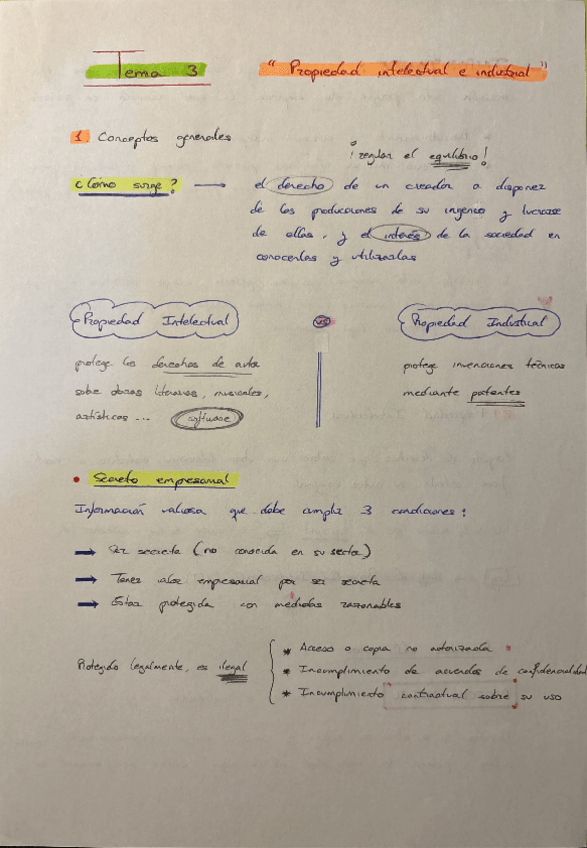 Tema 3
" Propiedad intelectual e industrial "
1. Conceptos generales
¡reglar el equilibrio!
¿Cómo surge?
el derecho de un creador a disponer
de las producciones de su ingenio y lucrarse
de ellas, y el interés de la sociedad en
conocerlas y utilizarlas
Propiedad Intelectual
vs
Propiedad Industrial
protege los derechos de autor
sobre obras literarias, musicales,
artísticas ... software
protege invenciones técnicas
mediante patentes
• Secreto empresarial
Información valiosa que debe cumplir 3 condiciones:
→ Ser secreta (no conocida en su sector)
→ Tener valor empresarial por ser secreta
→ Estar protegida con medidas razonables
Protegido legalmente, es ilegal
* Acceso o copia no autorizada
* Incumplimiento de acuerdos de confidencialidad
* Incumplimiento contractual sobre su uso